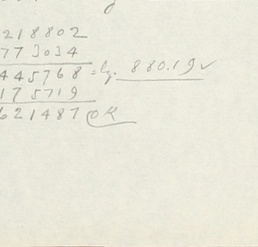 218802
773034
445768 = lg. 880.19 ✓
175719
621487 OK